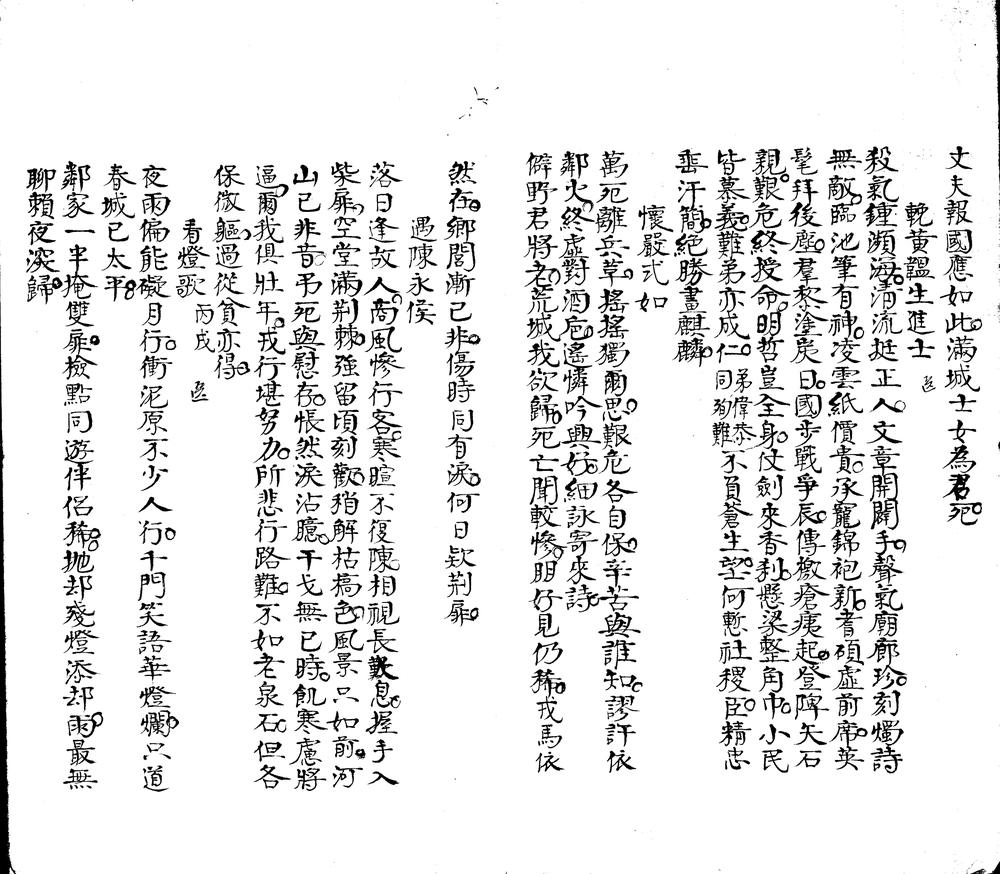 丈夫報國應如此滿城士女為君死
輓黃韞生進士
殺氣纏瀕海清流挺正人文章開闢手聲氣廟廊珍刻燭詩
無敵臨池筆有神凌雲紙價貴承寵錦袍新耆碩虛前席英
髦拜後塵羣黎塗炭日國步戰爭辰傳檄瘡痍起登陴矢石
親艱危終授命明哲豈全身仗劍來香剎懸梁整角巾小民
皆慕義難弟亦成仁弟偉恭同殉難不負蒼生望何慙社稷臣精忠
垂汗簡絕勝畫麒麟
懷嚴式如
萬死離兵草搖搖獨爾思艱危各自保辛苦與誰知謬許依
鄰火終虛對酒卮遙憐吟興好細詠寄來詩
僻野君將老荒城我欲歸死亡聞較慘朋好見仍稀戎馬依
然在鄉閭漸已非傷時同有淚何日欵荆扉
遇陳永侯
落日逢故人商風慘行客寒暄不復陳相視長歎息握手入
柴扉空堂滿荆棘強留頃刻歡稍解枯槁色風景只如前河
山已非昔弔死與慰存悵然淚沾臆干戈無已時飢寒慮將
逼爾我俱壯年戎行堪努力所悲行路難不如老泉石但各
保微軀過從貧亦得
看燈歌 丙戌
夜雨偏能礙月行衝泥原不少人行千門笑語華燈爛只道
春城已太平
鄰家一半掩雙扉檢點同遊伴侶稀拋却殘燈添却雨最無
聊賴夜深歸